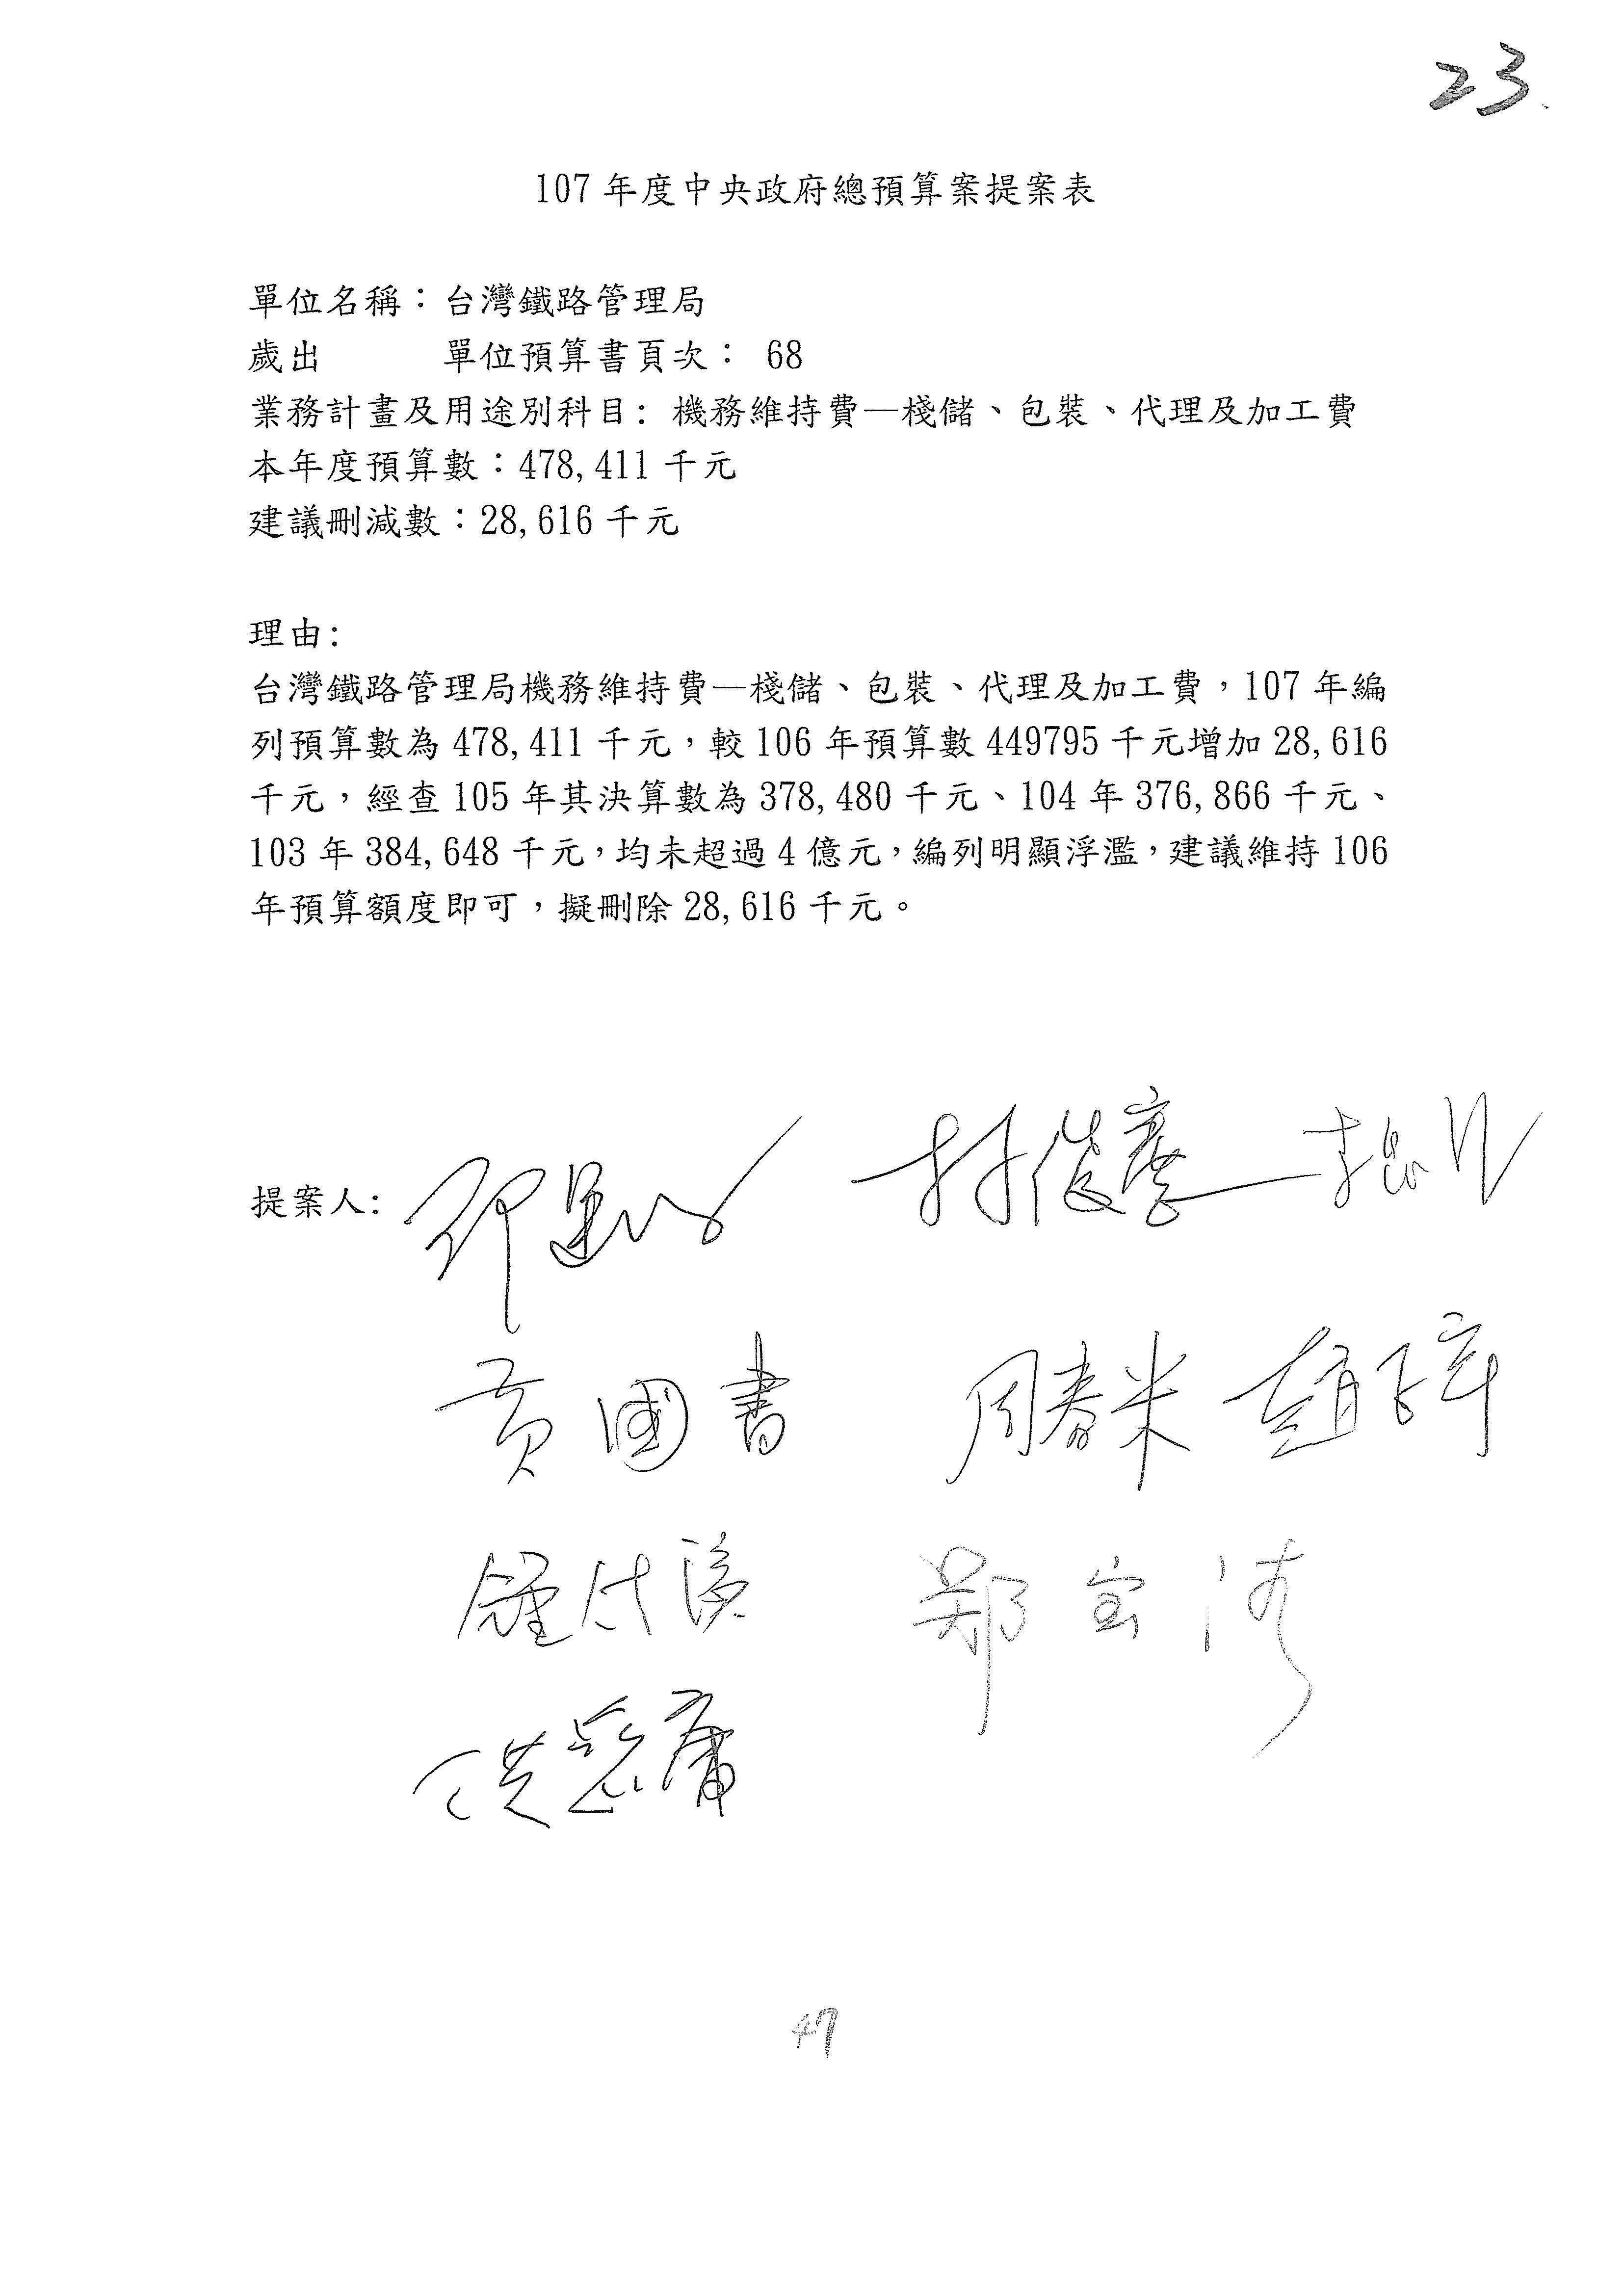 23
107 年度中央政府總預算案提案表
單位名稱：台灣鐵路管理局
歲出 單位預算書頁次： 68
業務計畫及用途別科目: 機務維持費—棧儲、包裝、代理及加工費
本年度預算數：478,411 千元
建議刪減數：28,616 千元
理由:
台灣鐵路管理局機務維持費—棧儲、包裝、代理及加工費，107 年編
列預算數為 478,411 千元，較 106 年預算數 449795 千元增加 28,616
千元，經查 105 年其決算數為 378,480 千元、104 年 376,866 千元、
103 年 384,648 千元，均未超過 4 億元，編列明顯浮濫，建議維持 106
年預算額度即可，擬刪除 28,616 千元。
提案人:
黃國書 周春米
鄭宝清
47